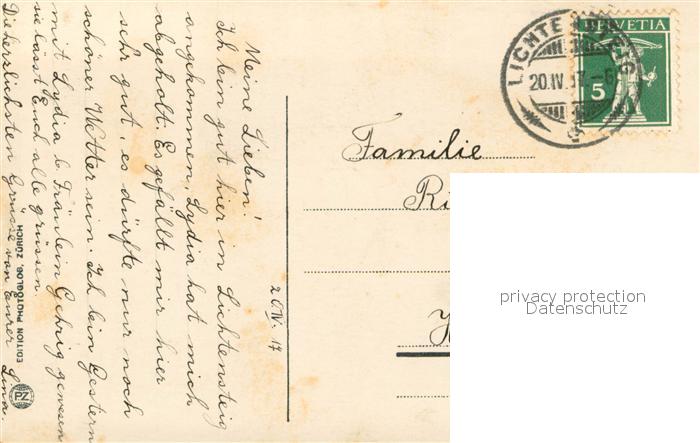 Meine Lieben!
Ich bin gut hier in Lichtensteig
angekommen, Lydia hat mich
abgeholt. Es gefällt mir hier
sehr gut, es dürfte nur noch
schöner Wetter sein. Ich bin Gestern
mit Lydia b. Fräulein Gehrig gewesen
sie lässt Euch alle grüssen.
Die herzlichsten Grüsse von Eurer Lina.
20. IV. 17
EDITION PHOTOGLOB, ZÜRICH
PZ
LICHTENSTEIG
20.IV.17
HELVETIA
5
Familie
privacy protection
Datenschutz